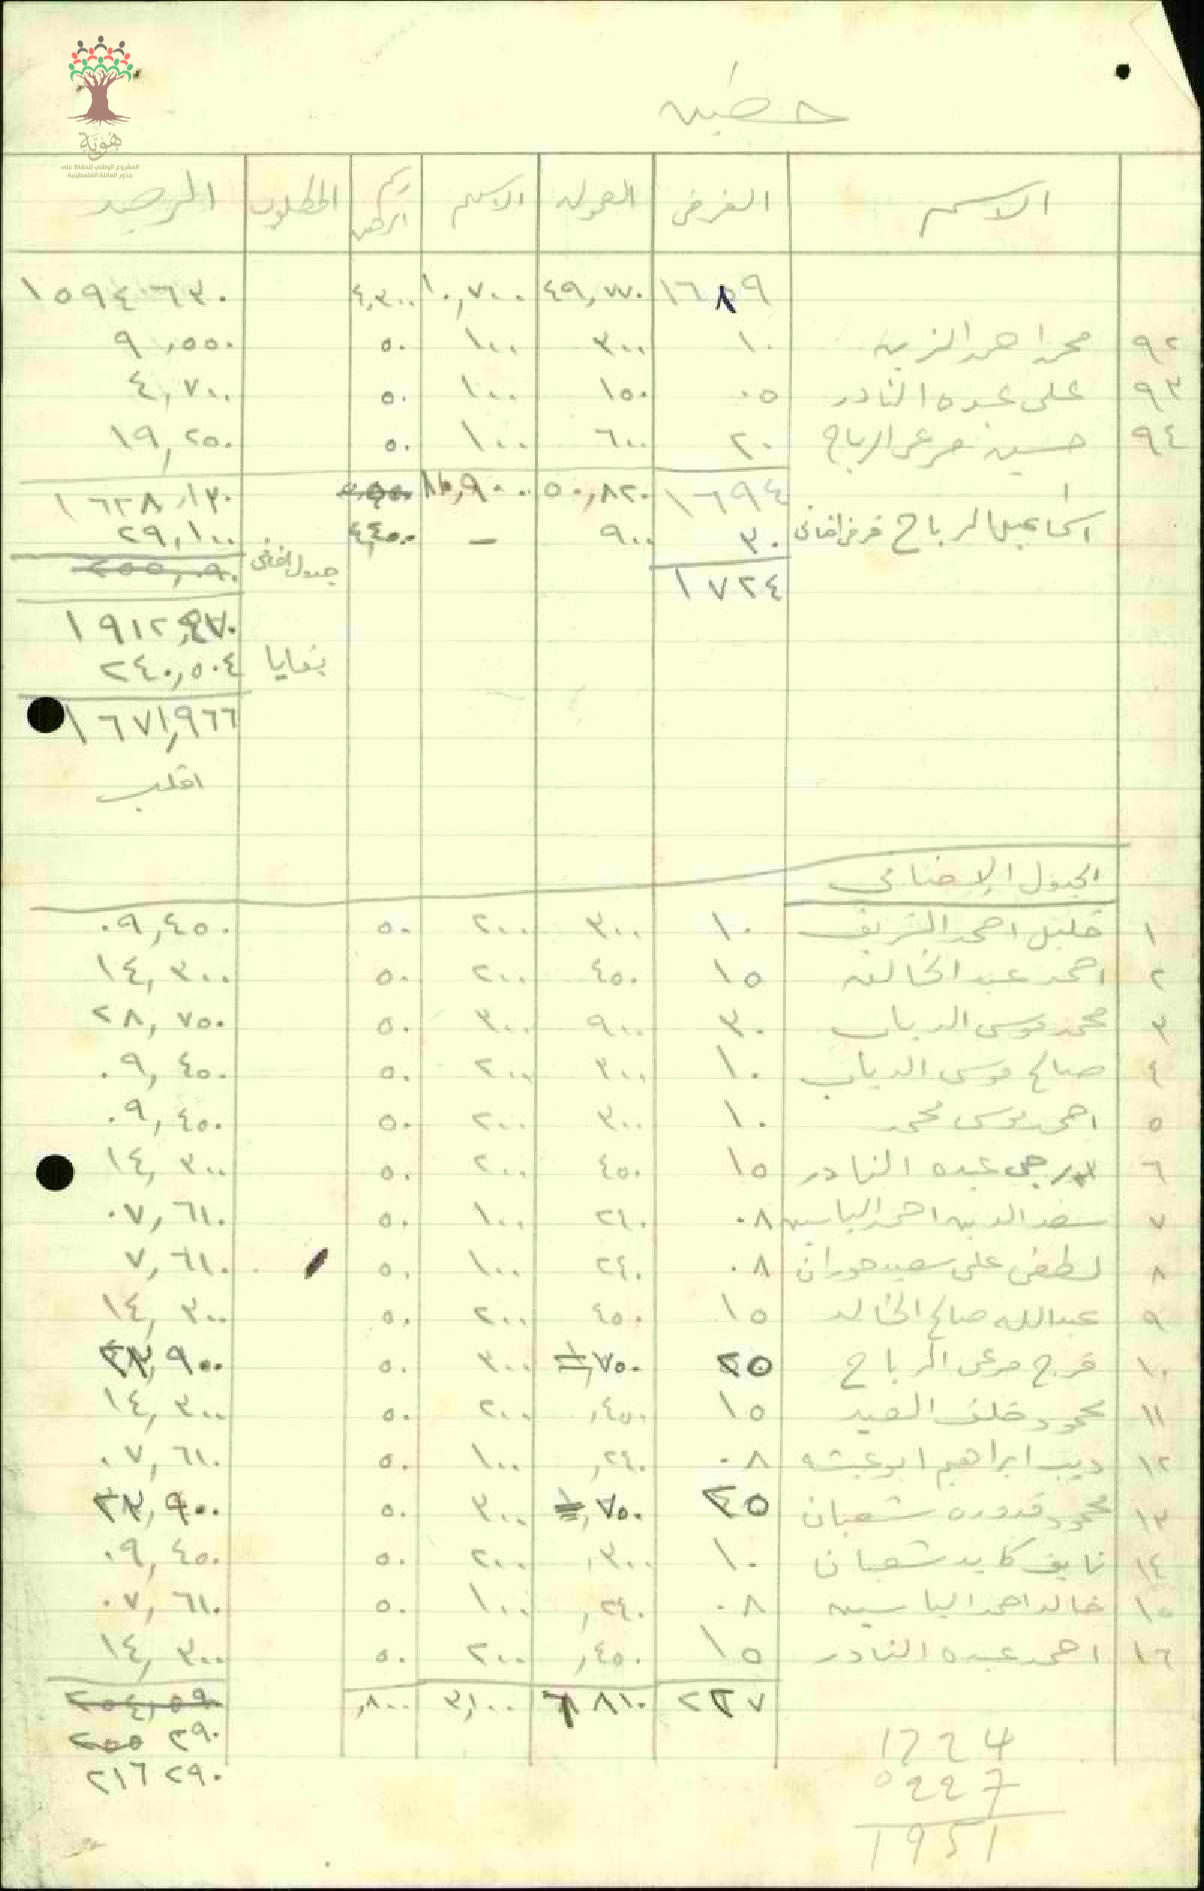 هُويّة
المشروع الوطني للحفاظ على
جذور العائلة الفلسطينية
حطين
الاسم القرض العمولة الاسهم رسم الرهن المطلوب الرصيد
١٦٨٩ ٤٩,٧٧٠ ١٠,٧٠٠ ٤,٣٠٠ ١٥٩٤ ٦٣٠
٩٢ محمد احمد الزين ١٠ ٣٠٠ ١٠٠ ٥٠ ٩,٥٥٠
٩٣ على عبده النادر ٠٥ ١٥٠ ١٠٠ ٥٠ ٤,٧٠٠
٩٤ حسين مرعي الرباح ٢٠ ٦٠٠ ١٠٠ ٥٠ ١٩,٢٥٠
١٦٩٤ ٥٠,٨٢٠ ١٠,٩٠٠ ١٦٢٨,١٣٠
اسماعيل الرباح قرض اضافي ٣٠ ٩٠٠ - ٤,٤٥٠ ٢٩,١٠٠
١٧٢٤ جدول اضافي ٢٥٥,٠٩٠
١٩١٢,٤٧٠
بقايا ٢٤٠,٥٠٤
١٦٧١,٩٦٦
اقلب
الجدول الإضافي
١ خليل احمد الشريف ١٠ ٣٠٠ ٢٠٠ ٥٠ ٠٩,٤٥٠
٢ احمد عبد الخالق ١٥ ٤٥٠ ٢٠٠ ٥٠ ١٤,٣٠٠
٣ محمد موسى الدياب ٣٠ ٩٠٠ ٣٠٠ ٥٠ ٢٨,٧٥٠
٤ صالح موسى الدياب ١٠ ٣٠٠ ٢٠٠ ٥٠ ٠٩,٤٥٠
٥ احمد موسى محمد ١٠ ٣٠٠ ٢٠٠ ٥٠ ٠٩,٤٥٠
٦ عبده النادر ١٥ ٤٥٠ ٢٠٠ ٥٠ ١٤,٣٠٠
٧ سعد الدين احمد الياسين ٠٨ ٢٤٠ ١٠٠ ٥٠ ٠٧,٦١٠
٨ لطفي على سعيد حوران ٠٨ ٢٤٠ ١٠٠ ٥٠ ٧,٦١٠
٩ عبدالله صالح الخالد ١٥ ٤٥٠ ٢٠٠ ٥٠ ١٤,٣٠٠
١٠ فرج مرعي الرباح ٢٥ ٧٥٠ ٣٠٠ ٥٠ ٢٣,٩٠٠
١١ محمود خلف العيد ١٥ ,٤٥٠ ٢٠٠ ٥٠ ١٤,٣٠٠
١٢ ديب ابراهيم ابو عيشه ٠٨ ,٢٤٠ ١٠٠ ٥٠ ٠٧,٦١٠
١٣ محمود قدوره شعبان ٢٥ ٧٥٠ ٣٠٠ ٥٠ ٢٣,٩٠٠
١٤ نايف كايد شعبان ١٠ ,٣٠٠ ٢٠٠ ٥٠ ٠٩,٤٥٠
١٥ خالد احمد الياسين ٠٨ ,٢٤٠ ١٠٠ ٥٠ ٠٧,٦١٠
١٦ احمد عبده النادر ١٥ ,٤٥٠ ٢٠٠ ٥٠ ١٤,٣٠٠
٢٢٧ ٦ ٨١٠ ٣,١٠٠ ,٨٠٠ ٢٥٤,٥٩٠
٢٩٠
٢١٦ ٢٩٠
1724
0227
1951